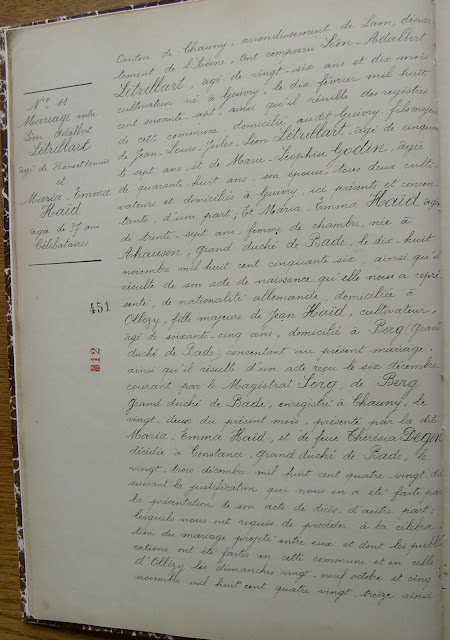 N° 11
Mariage entre
Léon Adalbert
Létrillart
âgé de 26 ans et 10 mois
et
Maria-Emma
Haïd
âgée de 37 ans
Célibataires
451
M12
Canton de Chauny, arrondissement de Laon, dépar
tement de l'Aisne, ont comparu Léon-Adalbert
Létrillart, âgé de vingt-six ans et dix mois
cultivateur né à Guivry, le dix février mil huit
cent soixante-sept, ainsi qu'il résulte des registres
de cette commune, domicilié au dit Guivry, fils majeur
de Jean-Louis-Jules-Léon Létrillart, âgé de cinquan
te sept ans et de Marie-Léophise Godin, âgée
de quarante-huit ans, son épouse, tous deux culti-
vateurs et domiciliés à Guivry, ici présents et consen-
tants, d'une part, Et Maria-Emma Haïd, âgée
de trente-sept ans, femme de chambre, née à
grand duché de Bade, le dix-huit
novembre mil huit cent cinquante six, ainsi qu'il
résulte de son acte de naissance qu'elle nous a repré
senté, de nationalité allemande, domiciliée à
Ollezy, fille majeure de Jean Haïd, cultivateur,
âgé de soixante-cinq ans, domicilié à Berg (Grand
duché de Bade) consentant au présent mariage,
ainsi qu'il résulte d'un acte reçu le six décembre
courant par le Magistrat de Berg
Grand duché de Bade, enregistré à Chauny, le
vingt-deux du présent mois, présenté par la dite
Maria-Emma Haïd, et de feue Thérésia
décédée à Constance, Grand duché de Bade, le
vingt-trois décembre mil huit cent quatre-vingt-
suivant la justification que nous en a été faite par
la présentation de son acte de décès, d'autre part;
lesquels nous ont requis de procéder à la célébra-
tion du mariage projeté entre eux et dont les publi
cations ont été faites en cette commune et en celle
d'Ollezy les dimanches vingt-neuf octobre et cinq
novembre mil huit cent quatre vingt-treize ainsi